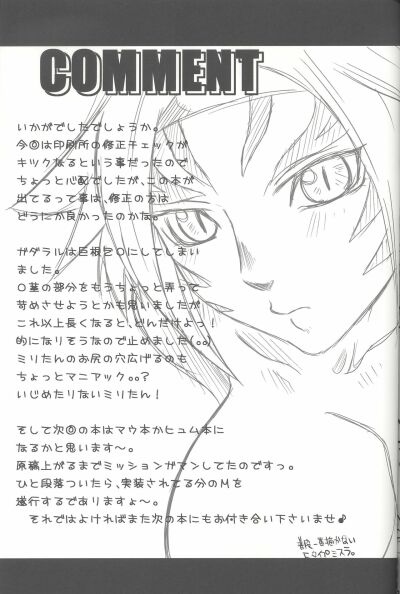 COMMENT
いかがでしたでしょうか。
今回は印刷所の修正チェックが
キツクなるという事だったので
ちょっと心配でしたが、この本が
出てるって事は、修正の方は
どうにか良かったのかな。
ガダラルは巨根包〇にしてしまい
ました。
〇茎の部分をもうちょっと弄って
苛めさせようとかも思いましたが
これ以上長くなると、どんだけよっ!
的になりそうなので止めました(。。)
ミリたんのお尻の穴広げるのも
ちょっとマニアック。。?
いじめたりないミリたん!
そして次回の本はマウ本かヒュム本に
なるかと思います〜。
原稿上がるまでミッションガマンしてたのですっ。
ひと段落ついたら、実装されてる分のMを
遂行するでありますょ〜。
それではよければまた次の本にもお付き合い下さいませ♪
ミスラ。